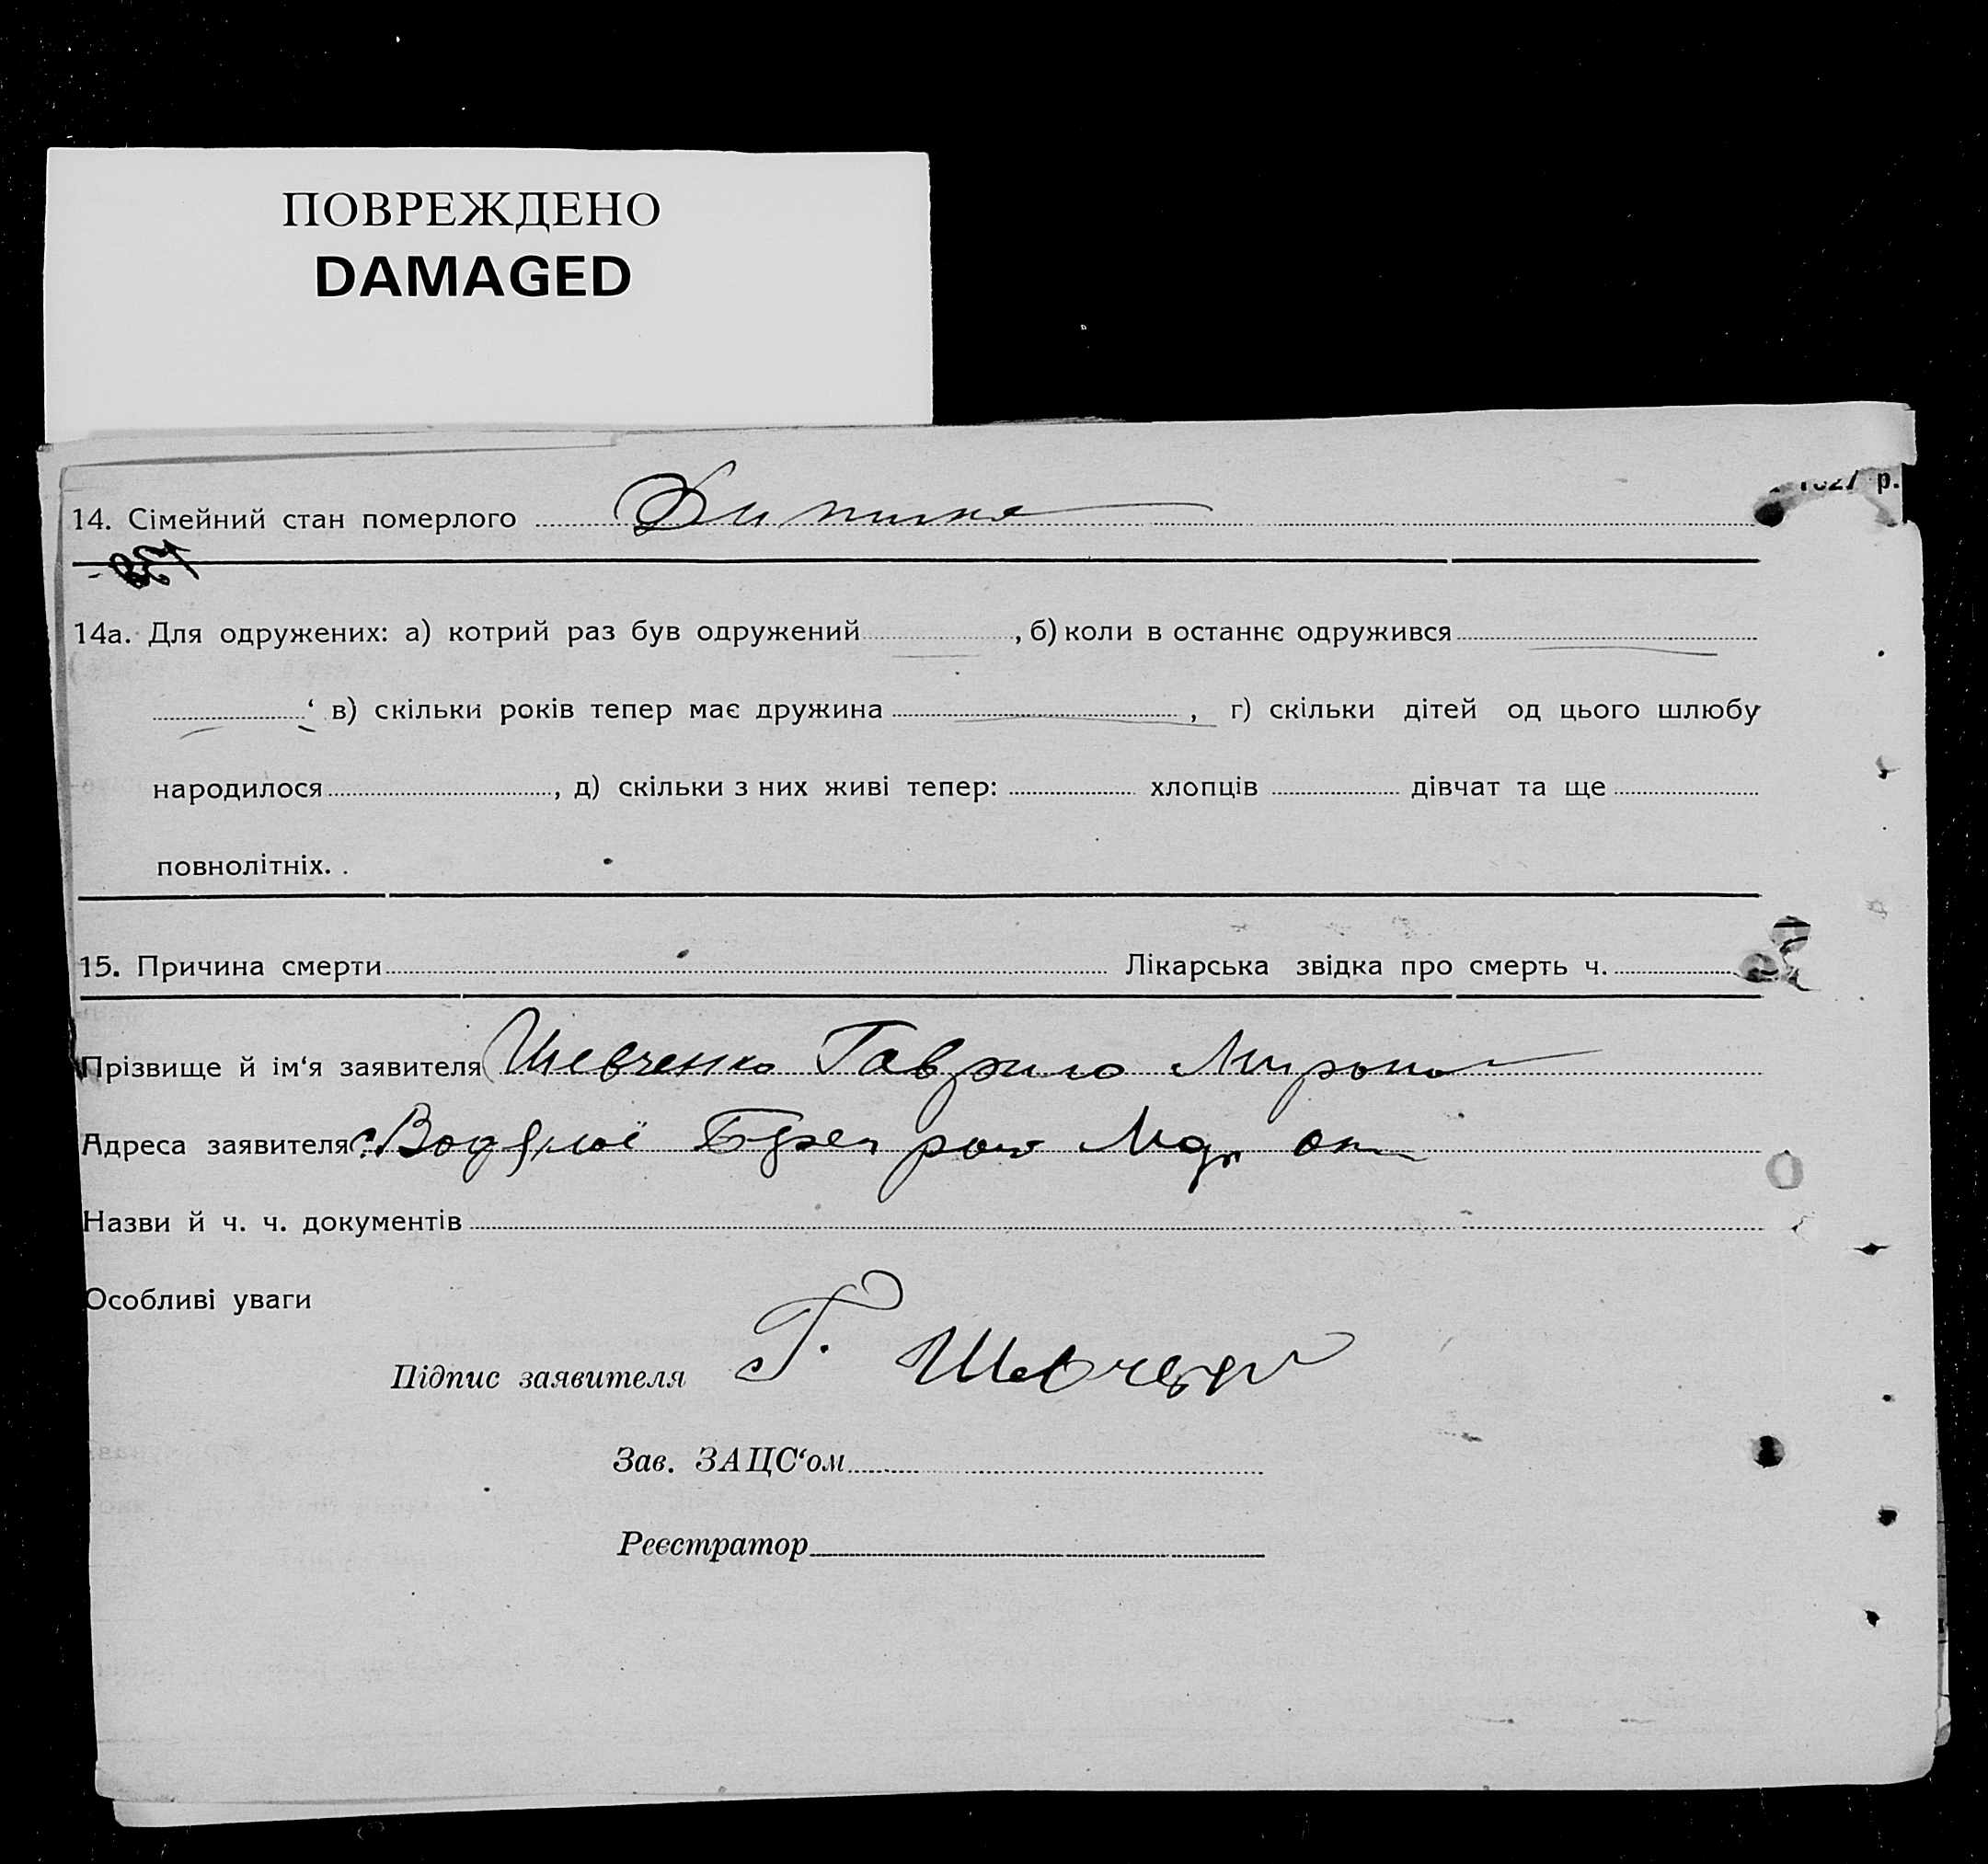 ПОВРЕЖДЕНО
DAMAGED
р.
14. Сімейний стан померлого Дитина
14а. Для одружених: а) котрий раз був одружений , б) коли в останнє одружився
в) скільки років тепер має дружина , г) скільки дітей од цього шлюбу
народилося , д) скільки з них живі тепер: хлопців дівчат та ще
повнолітніх.
15. Причина смерти Лікарська звідка про смерть ч.
Прізвище й ім‘я заявителя Шевченко Гаврило Миронов
Адреса заявителя с.
Назви й ч. ч. документів
Особливі уваги
Підпис заявителя Г. Шевченко
Зав. ЗАЦС‘ом
Реєстратор